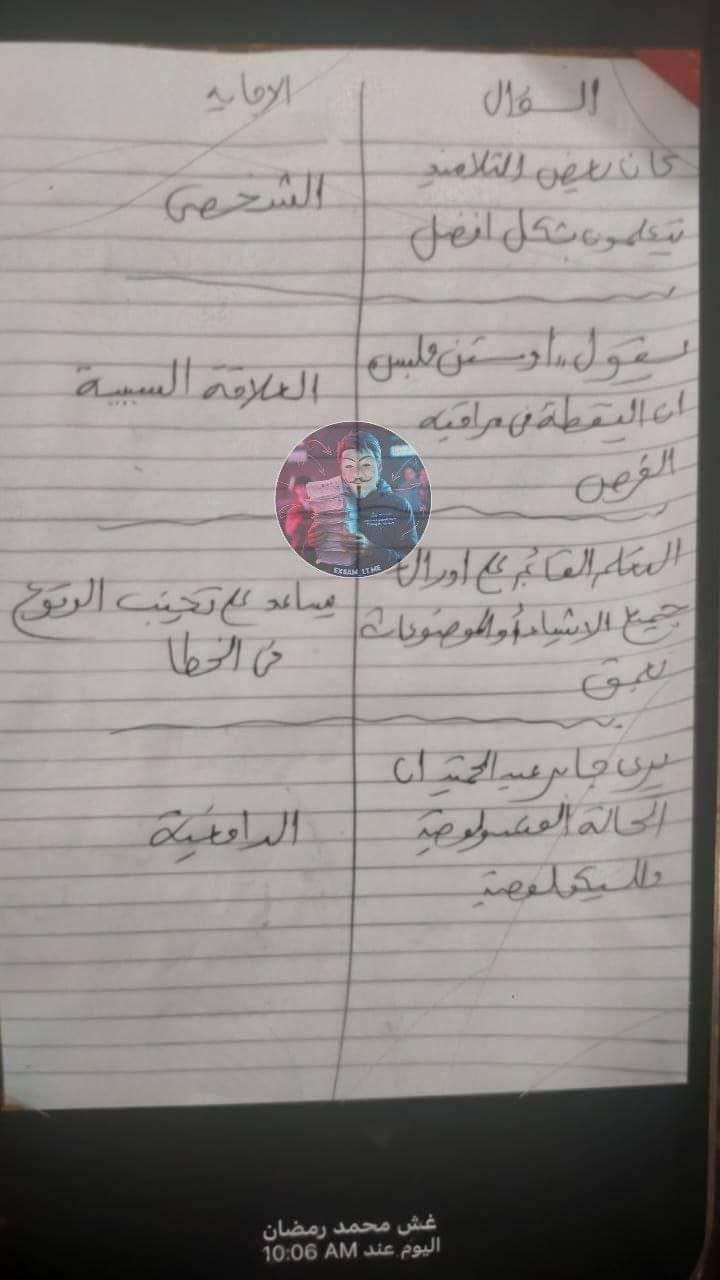 السؤال
الاجابه
كان بعض التلاميذ
يتعلمون بشكل افضل
الشخصى
يقول "اوستن فلبس
ان اليقظة فى مراقبه
الفرص
العلاقة السببية
EXSAM_1T.ME
التعلم القائم على ادراك
جميع الاشياء أو الموضوعات
بعمق
يساعد على تجنب الوقوع
فى الخطا
يرى جابر عبد الحميد ان
الحالة الفسيولوجية
والسيكولوجية
الدافعية
غش محمد رمضان
اليوم عند 10:06 AM